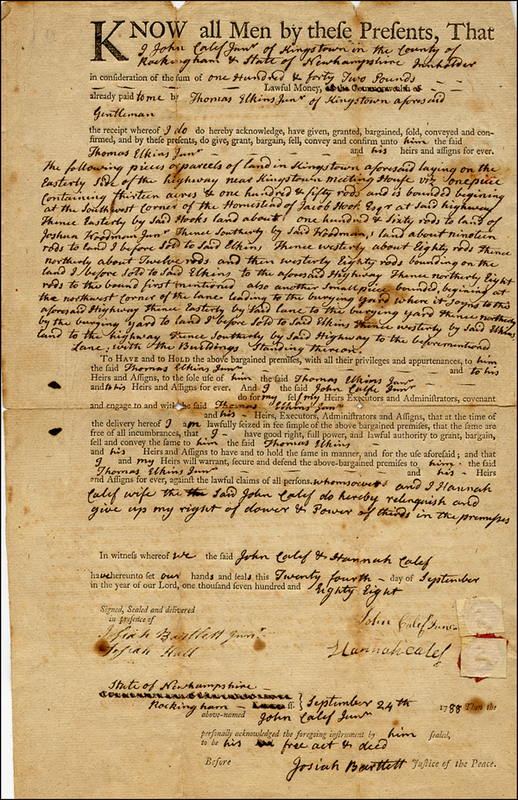 KNOW all Men by these Presents, That
I John Calef Junr of Kingstown in the County of
Rockingham & State of Newhampshire Innholder
in consideration of the sum of one Hundred & forty Two Pounds
Lawful Money, of the Commonwealth of
already paid to me by Thomas Elkins Junr of Kingstown aforesaid
Gentleman
the receipt whereof I do do hereby acknowledge, have given, granted, bargained, sold, conveyed and con-
firmed, and by these presents, do give, grant, bargain, sell, convey and confirm unto him the said
Thomas Elkins Junr and his heirs and assigns for ever.
The following pieces or parcels of land in Kingstown aforesaid laying on the
Easterly Side of the highway near Kingstown meeting House viz one piece
Containing thirteen acres & one hundred & fifty rods and is bounded begining
at the Southwest Corner of the Homestead of Jacob Hook Esqr at Said highway
Thence Easterly by Said Hooks land about one hundred & Sixty rods to land of
Joshua Woodman Junr Thence Southerly by Said Woodmans land about ninetein
rods to land I before Sold to Said Elkins Thence westerly about Eighty rods Thence
northerly about Twelve rods and then westerly Eighty rods bounding on the
land I before Sold to Said Elkins to the aforesaid Highway Thence northerly Eight
rods to the bound first mentioned also another Small piece bounded, begining at
the northwest Corner of the lane leading to the burying yard where it Joyns to this
aforesaid Highway Thence Easterly by Said lane to the burying yard Thence northerly
by the burying yard to land I before Sold to Said Elkins Thence westerly by Said Elkins
land to the highway Thence Southerly by Said Highway to the beforementiond
Lane, with the Buildings Standing thereon.
To HAVE and to HOLD the above bargained premises, with all their privileges and appurtenances, to him
the said Thomas Elkins Junr and to his
Heirs and Assigns, to the sole use of him the said Thomas Elkins Junr
and to his Heirs and Assigns for ever. And I the said John Calef Junr
do for my self my Heirs Executors and Administrators, covenant
and engage to and with the said Thomas Elkins Junr
and his Heirs, Executors, Administrators and Assigns, that at the time of
the delivery hereof I am lawfully seized in fee simple of the above bargained premises, that the same are
free of all incumbrances, that I have good right, full power, and lawful authority to grant, bargain,
sell and convey the same to him the said Thomas Elkins
and his Heirs and Assigns to have and to hold the same in manner, and for the use aforesaid; and that
I and my Heirs will warrant, secure and defend the above-bargained premises to him the said
Thomas Elkins Junr and his Heirs
and Assigns for ever, against the lawful claims of all persons whomsoever and I Hannah
Calef wife the Said John Calef do hereby relenquish and
give up my right of dower & Power of thirds in the premisses
In witness whereof we the said John Calef & Hannah Calef
have hereunto set our hands and seals this Twenty fourth day of September
in the year of our Lord, one thousand seven hundred and Eighty Eight
Signed, Sealed and delivered
in presence of
Josiah Bartlett Junr
Josiah Hall
John Calef Junr
Hannah Calef
State of Newhampshire
Rockingham ss. } September 24th 1788 Then the
above-named John Calef Junr
personally acknowledged the foregoing instrument by him sealed,
to be his free act & deed
Before Josiah Bartlett Justice of the Peace.